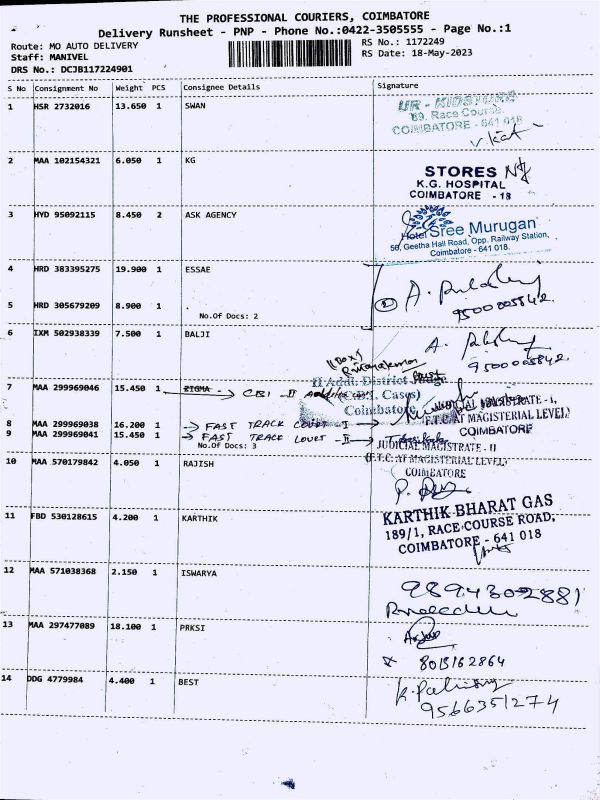 THE PROFESSIONAL COURIERS, COIMBATORE
Delivery Runsheet - PNP - Phone No.:0422-3505555 - Page No.:1
Route: MO AUTO DELIVERY
RS No.: 1172249
Staff: MANIVEL
RS Date: 18-May-2023
DRS No.: DCJB117224901
S No Consignment No Weight PCS Consignee Details Signature
1 HSR 2732016 13.650 1 SWAN
89, Race Course,
COIMBATORE - 641 018
2 MAA 102154321 6.050 1 KG
STORES
K.G. HOSPITAL
COIMBATORE - 18
3 HYD 95092115 8.450 2 ASK AGENCY
Hotel Sree Murugan
56, Geetha Hall Road, Opp. Railway Station,
Coimbatore - 641 018.
4 HRD 383395275 19.900 1 ESSAE
5 HRD 305679209 8.900 1
9500005842
No.Of Docs: 2
6 IXM 502938339 7.500 1 BALJI
9500005842
II Addl. District Judge
7 MAA 299969046 15.450 1 ZIGMA CBI - II
Cases)
Coimbatore
JUDICIAL MAGISTRATE - I,
8 MAA 299969038 16.200 1 FAST TRACK COURT - I
(F.T.C. AT MAGISTERIAL LEVEL)
COIMBATORE
9 MAA 299969041 15.450 1 FAST TRACK COURT - II
No.Of Docs: 3
JUDICIAL MAGISTRATE - II
(F.T.C. AT MAGISTERIAL LEVEL)
COIMBATORE
10 MAA 570179842 4.050 1 RAJISH
11 FBD 530128615 4.200 1 KARTHIK
KARTHIK BHARAT GAS
189/1, RACE COURSE ROAD,
COIMBATORE - 641 018
12 MAA 571038368 2.150 1 ISWARYA
9894302881
13 MAA 297477089 18.100 1 PRKSI
8013162864
14 DDG 4779984 4.400 1 BEST
9566351274